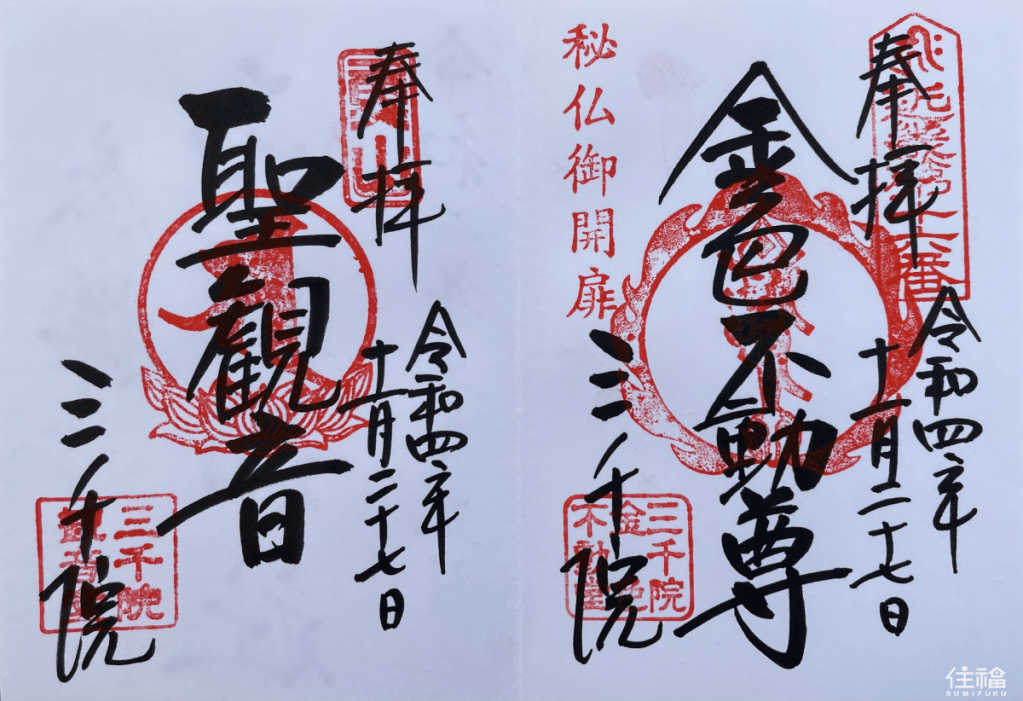 奉拝
令和四年
十一月二十七日
金色不動尊
秘仏御開扉
三千院
三千院
金色
不動堂
奉拝
令和四年
十一月二十七日
聖観音
三千院
三千院
観音堂
住福
SUMIFUKU